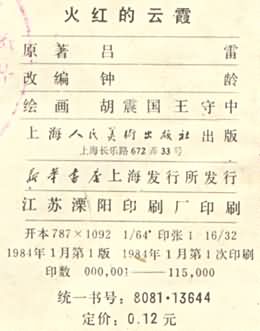 火红的云霞
原著 吕雷
改编 钟龄
绘画 胡震国 王守中
上海人民美术出版社出版
上海长乐路672弄33号
新华书店上海发行所发行
江苏溧阳印刷厂印刷
开本787×1092 1/64 印张1 16/32
1984年1月第1版 1984年1月第1次印刷
印数 000,001——115,000
统一书号：8081·13644
定价：0.12元